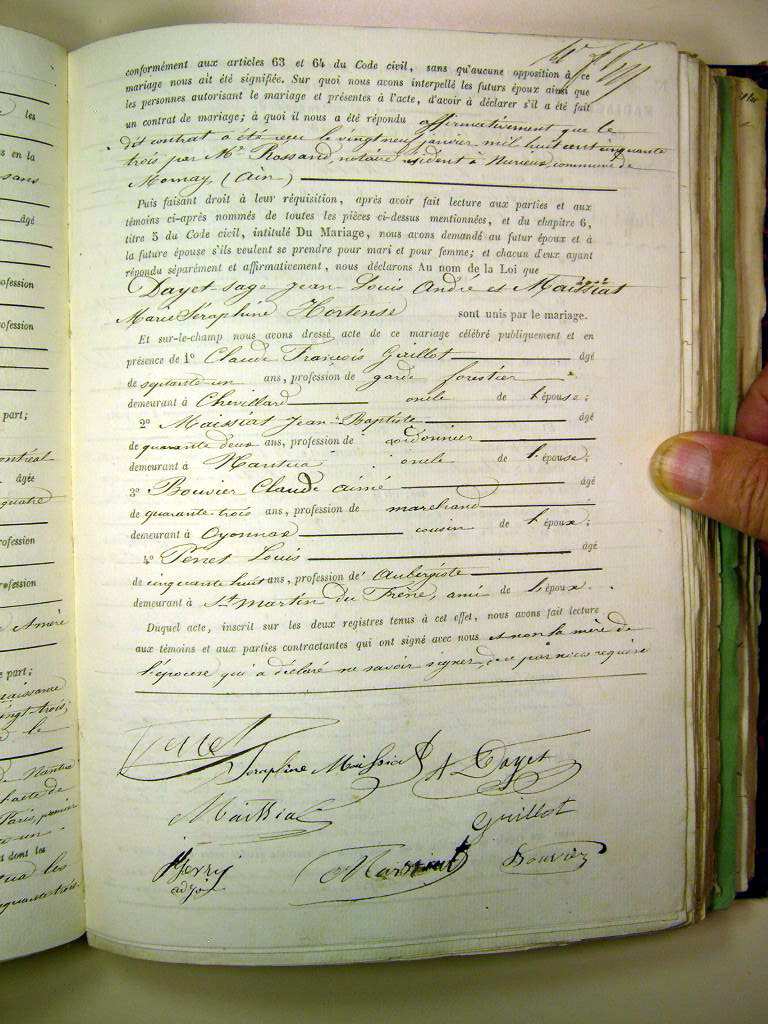 conformément aux articles 63 et 64 du Code civil, sans qu'aucune opposition à ce
mariage nous ait été signifiée. Sur quoi nous avons interpellé les futurs époux ainsi que
les personnes autorisant le mariage et présentes à l'acte, d'avoir à déclarer s'il a été fait
un contrat de mariage; à quoi il nous a été répondu affirmativement que le
dit contrat a été reçu le vingt neuf janvier mil huit cent cinquante
trois par Me Rossand, notaire résident à Nurieux, commune de
Mornay, (Ain)
Puis faisant droit à leur réquisition, après avoir fait lecture aux parties et aux
témoins ci-après nommés de toutes les pièces ci-dessus mentionnées, et du chapitre 6,
titre 5 du Code civil, intitulé Du Mariage, nous avons demandé au futur époux et à
la future épouse s'ils veulent se prendre pour mari et pour femme; et chacun d'eux ayant
répondu séparément et affirmativement, nous déclarons Au nom de la Loi que
Dayet sage Jean-Louis André et Maissiat
Marie Séraphine Hortense sont unis par le mariage.
Et sur-le-champ nous avons dressé acte de ce mariage célébré publiquement et en
présence de 1o Claude François Guillot âgé
de septante un ans, profession de garde forestier
demeurant à Chevillard oncle de l'épouse;
2o Maissiat Jean-Baptiste âgé
de quarante deux ans, profession de cordonnier
demeurant à Nantua oncle de l'épouse;
3o Bouvier Claude aimé âgé
de quarante-trois ans, profession de marchand
demeurant à Oyonnax cousin de l'époux;
4o Perret Louis âgé
de cinquante huit ans, profession de Aubergiste
demeurant à St martin du Frêne, ami de l'époux.
Duquel acte, inscrit sur les deux registres tenus à cet effet, nous avons fait lecture
aux témoins et aux parties contractantes qui ont signé avec nous et non la mère de
l'épouse qui a déclaré ne savoir signer, de ce par nous requise
Perret
Séraphine Maissiat A Dayet
Maissiat Guillot
adjoint Maissiat Bouvier
les
en la
sans
âgé
ofession
ofession
part;
ontréal
âgée
quatre
ofession
rofession
Aimée
part;
naissance
vingt-trois;
le
Nantua
l'acte de
Paris, premier
un
et dont les
les
quante-trois